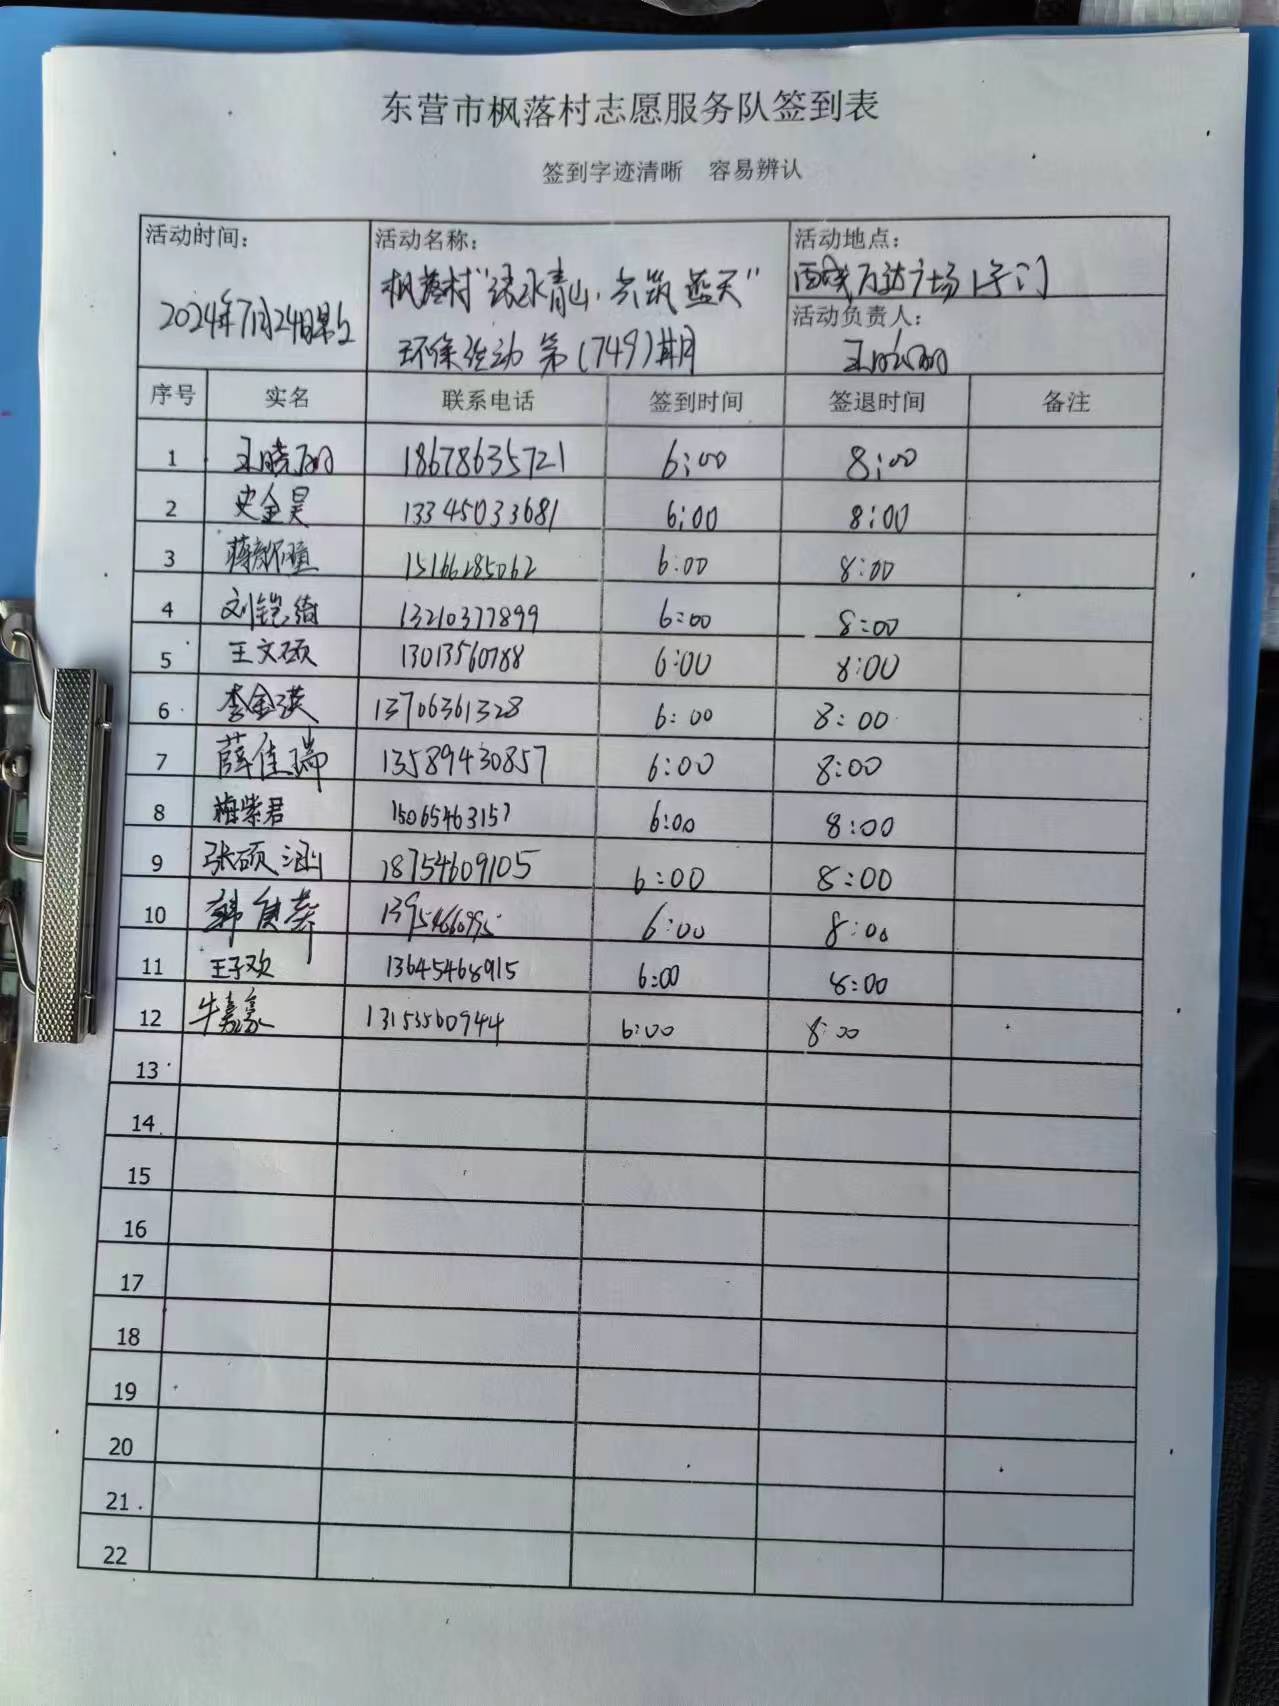 东营市枫落村志愿服务队签到表
签到字迹清晰 容易辨认
活动时间: 活动名称: 活动地点:
2024年7月24日早上 枫落村"绿水青山·共筑蓝天" 西城万达广场1号门
环保活动 第(749)期 活动负责人:
王晓丽
序号 实名 联系电话 签到时间 签退时间 备注
1 王晓丽 18678635721 6:00 8:00
2 史金昊 13345033681 6:00 8:00
3 蒋 15166285062 6:00 8:00
4 刘铠绮 13210377899 6:00 8:00
5 王文硕 13013560788 6:00 8:00
6 李金琪 13706361328 6:00 8:00
7 薛佳瑞 13589430857 6:00 8:00
8 梅紫君 15065463157 6:00 8:00
9 张硕涵 18754609105 6:00 8:00
10 韩 6:00 8:00
11 王子欢 13645468915 6:00 8:00
12 牛嘉豪 13153560944 6:00 8:00
13
14
15
16
17
18
19
20
21
22